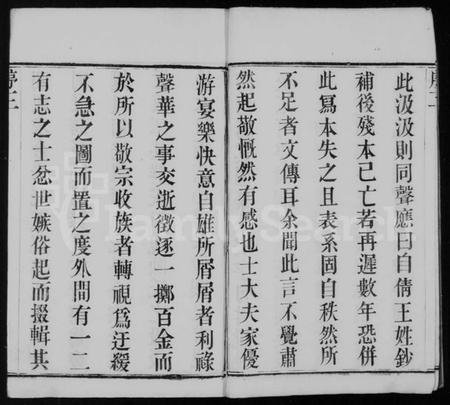 序二
此汲汲則同聲應曰自倩王姓鈔
補後殘本已亡若再遲數年恐併
此寫本失之且表系固自秩然所
不足者文傳耳余聞此言不覺肅
然起敬慨然有感也士大夫家優
游宴樂快意自雄所屑屑者利祿
聲華之事交逝徵逐一擲百金而
於所以敬宗收族者轉視爲迂緩
不急之圖而置之度外間有一二
有志之士忿世嫉俗起而掇輯其
序二